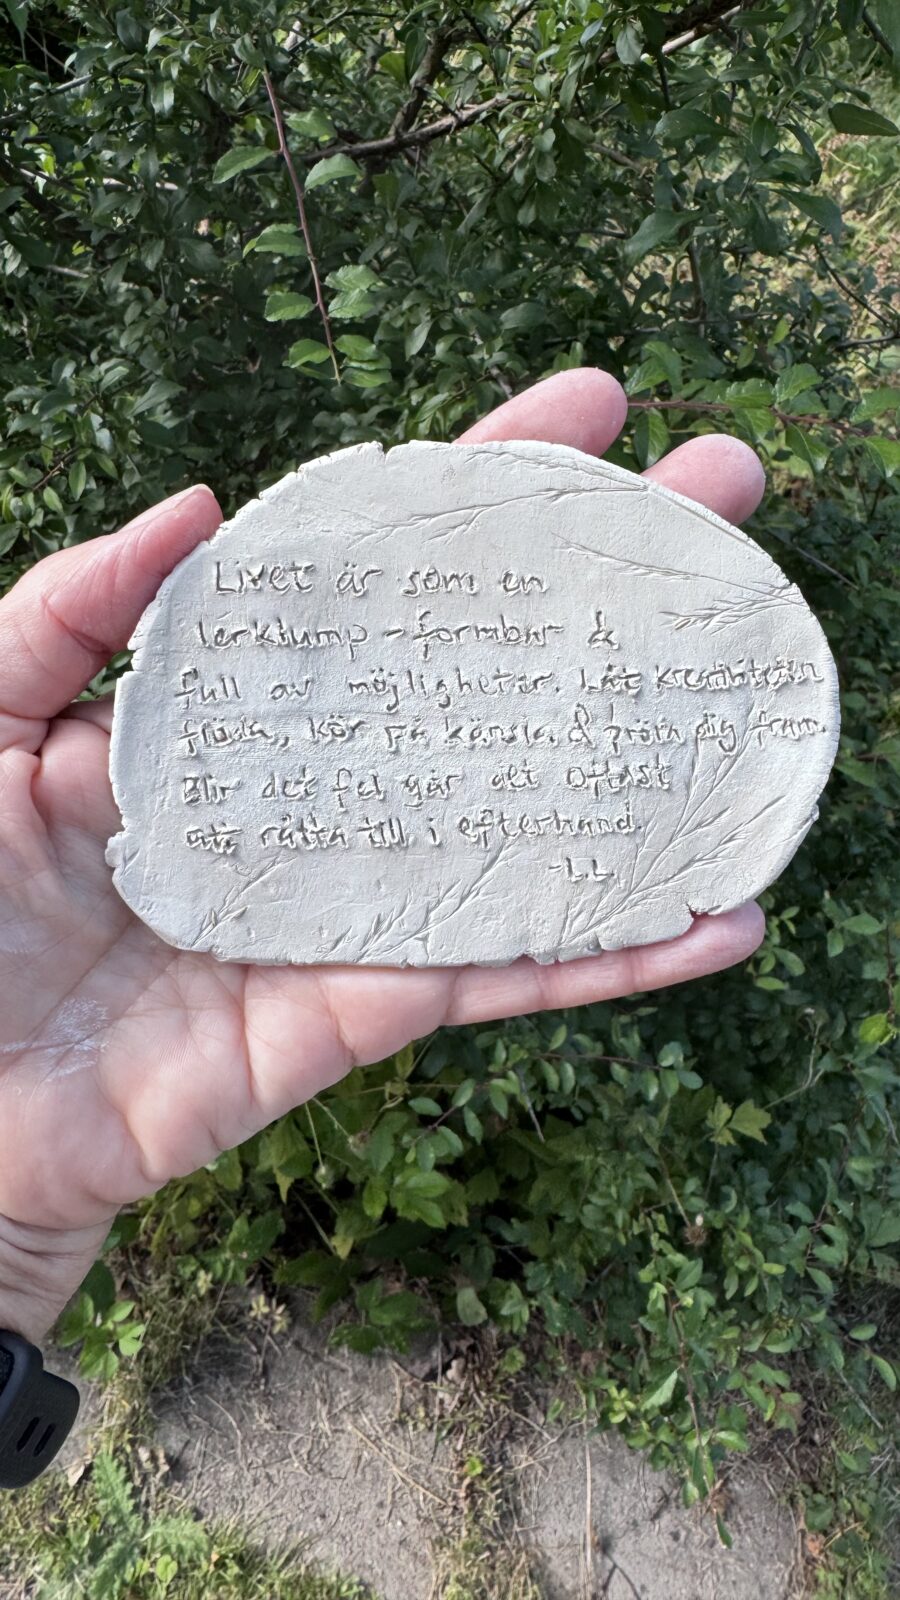 Livet är som en
lerklump - formbar &
full av möjligheter. Låt kreativiteten
flöda, kör på känsla & pröva dig fram.
Blir det fel går det oftast
att rätta till i efterhand.
-LL